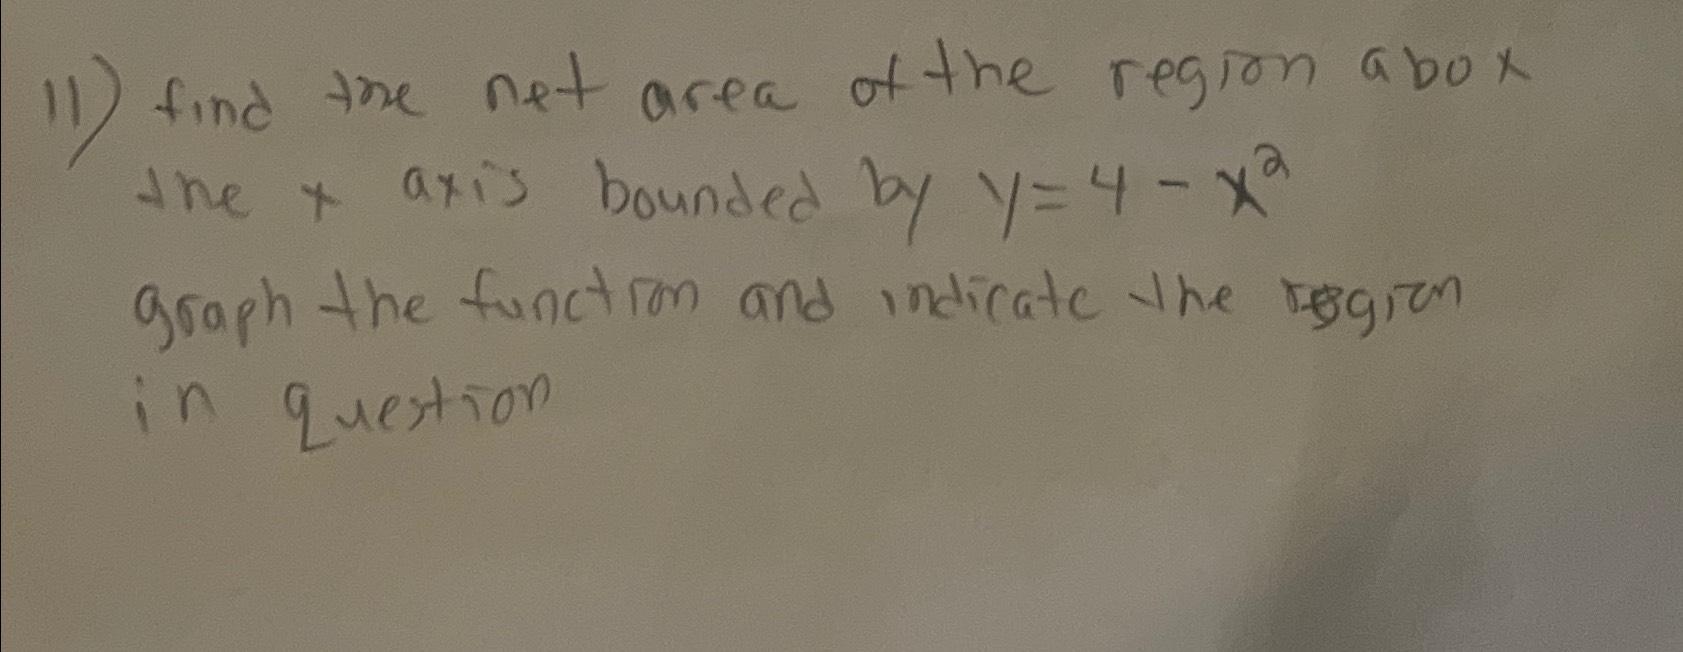 11) find the net area of the region abox
the x axis bounded by y = 4 - x²
graph the function and indicate the region
in question